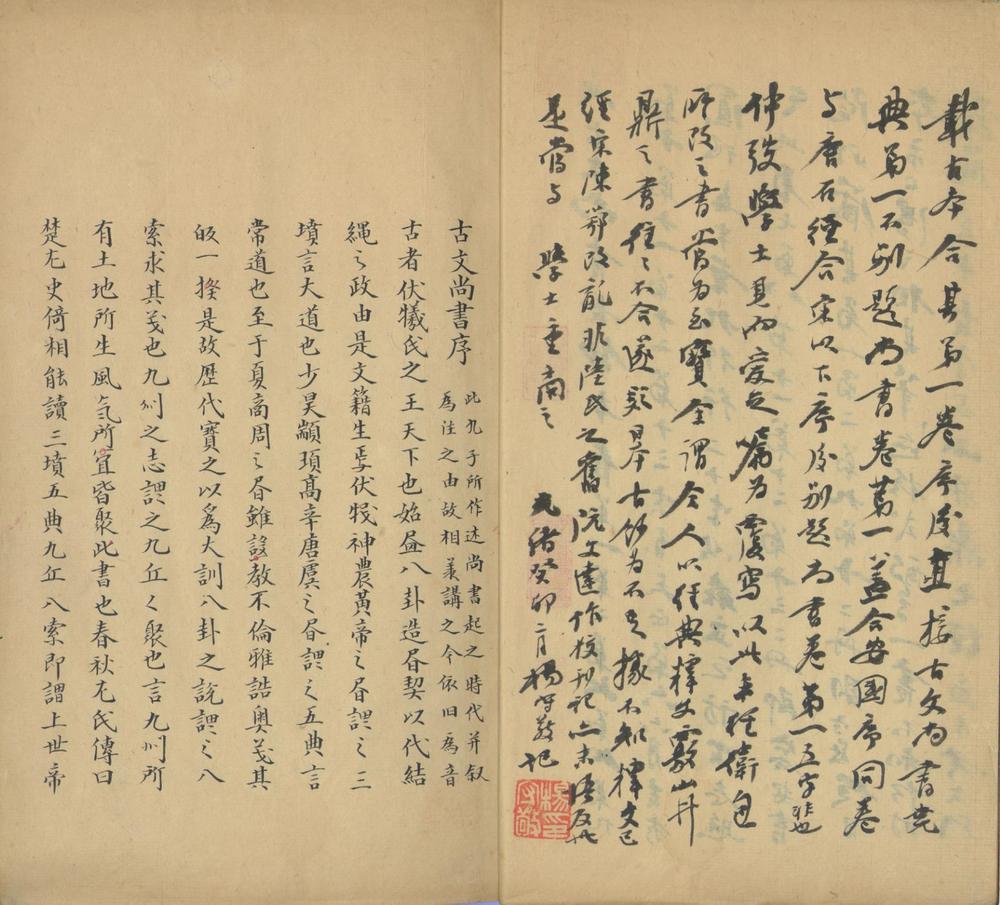 載古本合其第一卷序後直接古文尚書堯
典第一不別題尚書卷第一蓋合安國序同卷
与唐石經合宋以下序後別題尚書卷第一五字非也
仲弢學士見而愛之屬為覆寫以此
所改之書當為至寶余謂今人以經典釋文
鼎之書往往不合遂疑日本古鈔為不足據不知釋文已
經宋陳鄂改亂非陸氏之舊阮文達作校刊記亦未悟及此
是當与 學士重商之 光緒癸卯二月楊守敬記
楊守敬印
古文尚書序 此九子所作述尚書起之時代并叙
為注之由故相羕講之今依旧為音
古者伏犧氏之王天下也始𦘕八卦造㫪契以代結
繩之政由是文籍生焉伏犧神農黃帝之㫪謂之三
墳言大道也少昊顓頊高辛唐虞之㫪謂之五典言
常道也至于夏商周之㫪雖設教不倫雅誥奧義其
歸一揆是故歷代寶之以為大訓八卦之說謂之八
索求其義也九州之志謂之九丘々聚也言九州所
有土地所生風氣所宜皆聚此書也春秋左氏傳曰
楚左史倚相能讀三墳五典九丘八索即謂上世帝